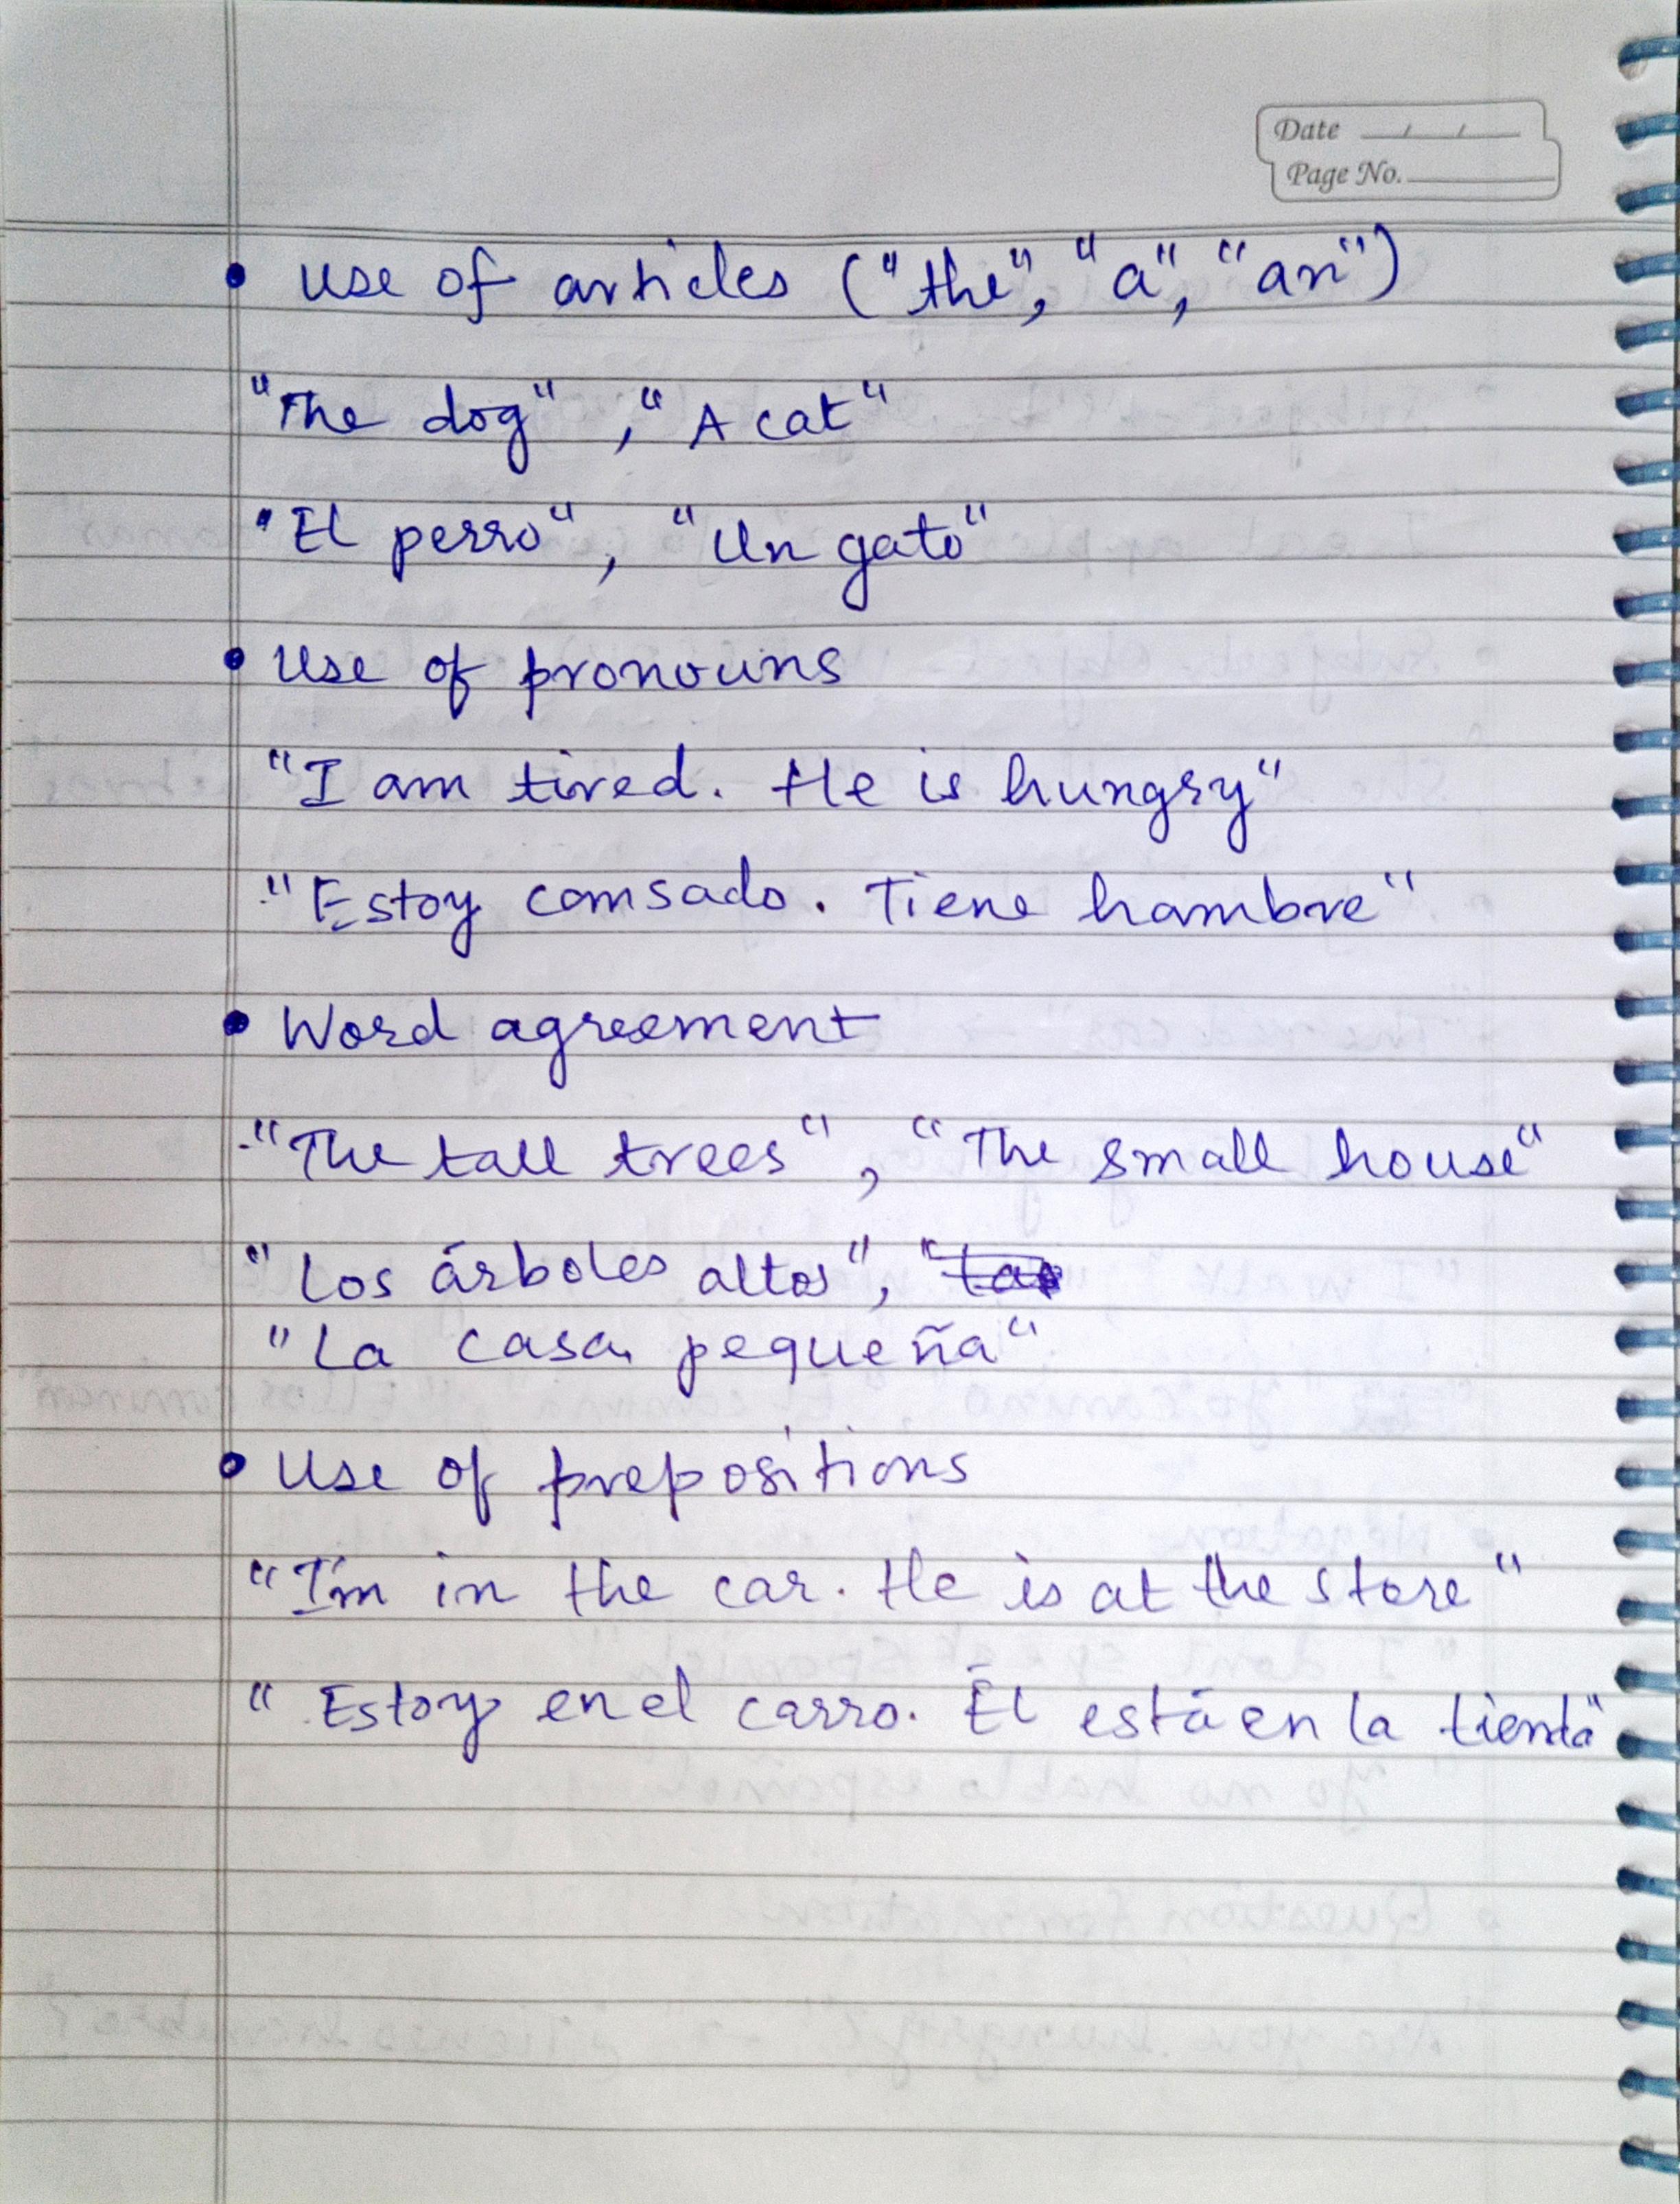 Date __/__/__
Page No.
• Use of articles ("the", "a", "an")
"The dog", "A cat"
"El perro", "Un gato"
• Use of pronouns
"I am tired. He is hungry"
"Estoy comsado. Tiene hambre"
• Word agreement
"The tall trees", "The small house"
"Los árboles altos", "
"La casa pequeña"
• Use of prepositions
"I'm in the car. He is at the store"
"Estoy en el carro. Él está en la tienda"